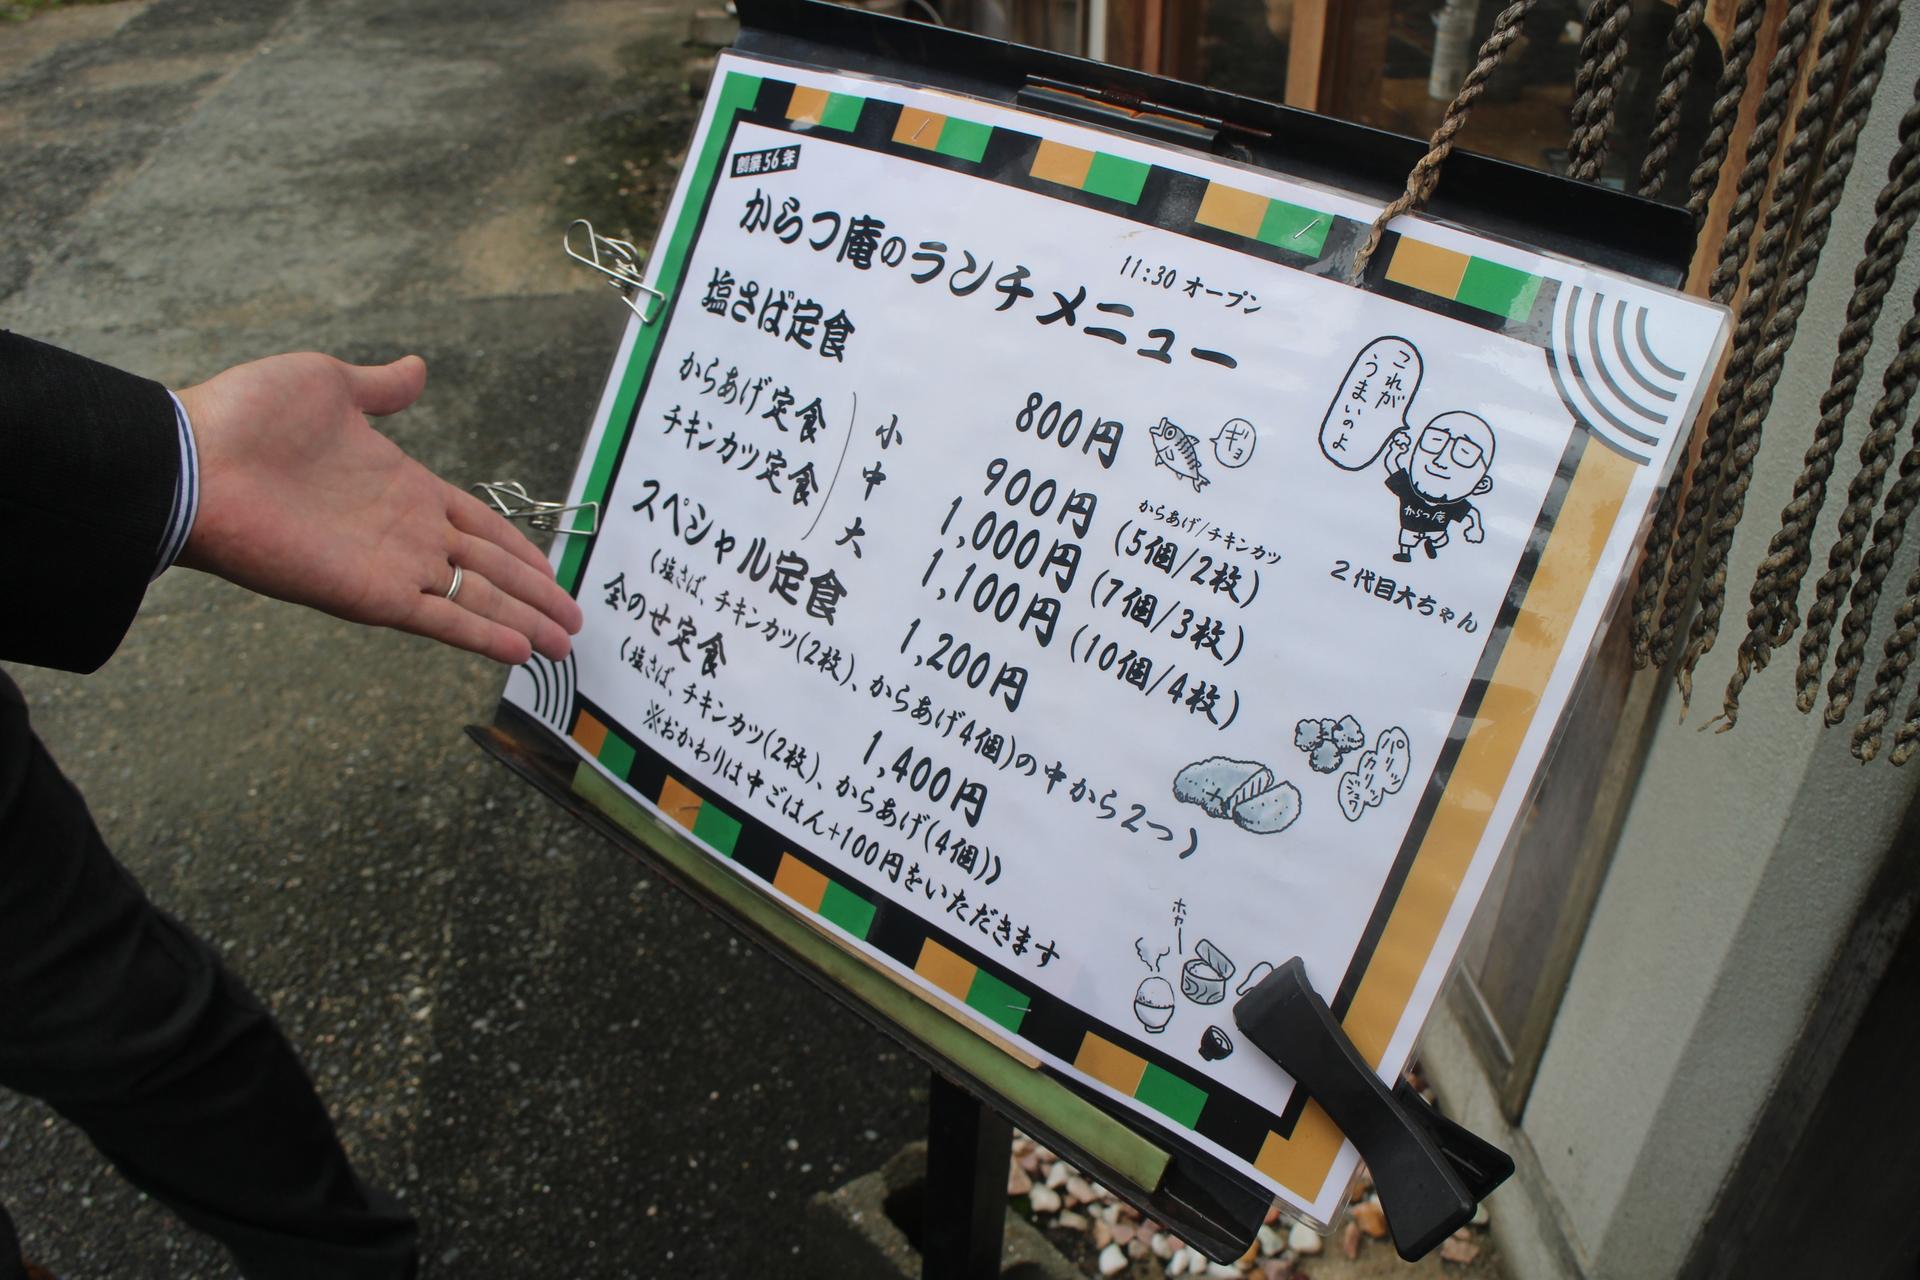 創業56年
11:30 オープン
からつ庵のランチメニュー
塩さば定食 800円
ギョ
これが
うまいのよ
からつ庵
2代目大ちゃん
からあげ/チキンカツ
からあげ定食
チキンカツ定食
小 900円 (5個/2枚)
中 1,000円 (7個/3枚)
大 1,100円 (10個/4枚)
スペシャル定食 1,200円
(塩さば、チキンカツ(2枚)、からあげ4個)の中から2つ)
全のせ定食 1,400円
(塩さば、チキンカツ(2枚)、からあげ(4個))
※おかわりは中ごはん+100円をいただきます
パリッ
カリッ
ジュワ
ホカー